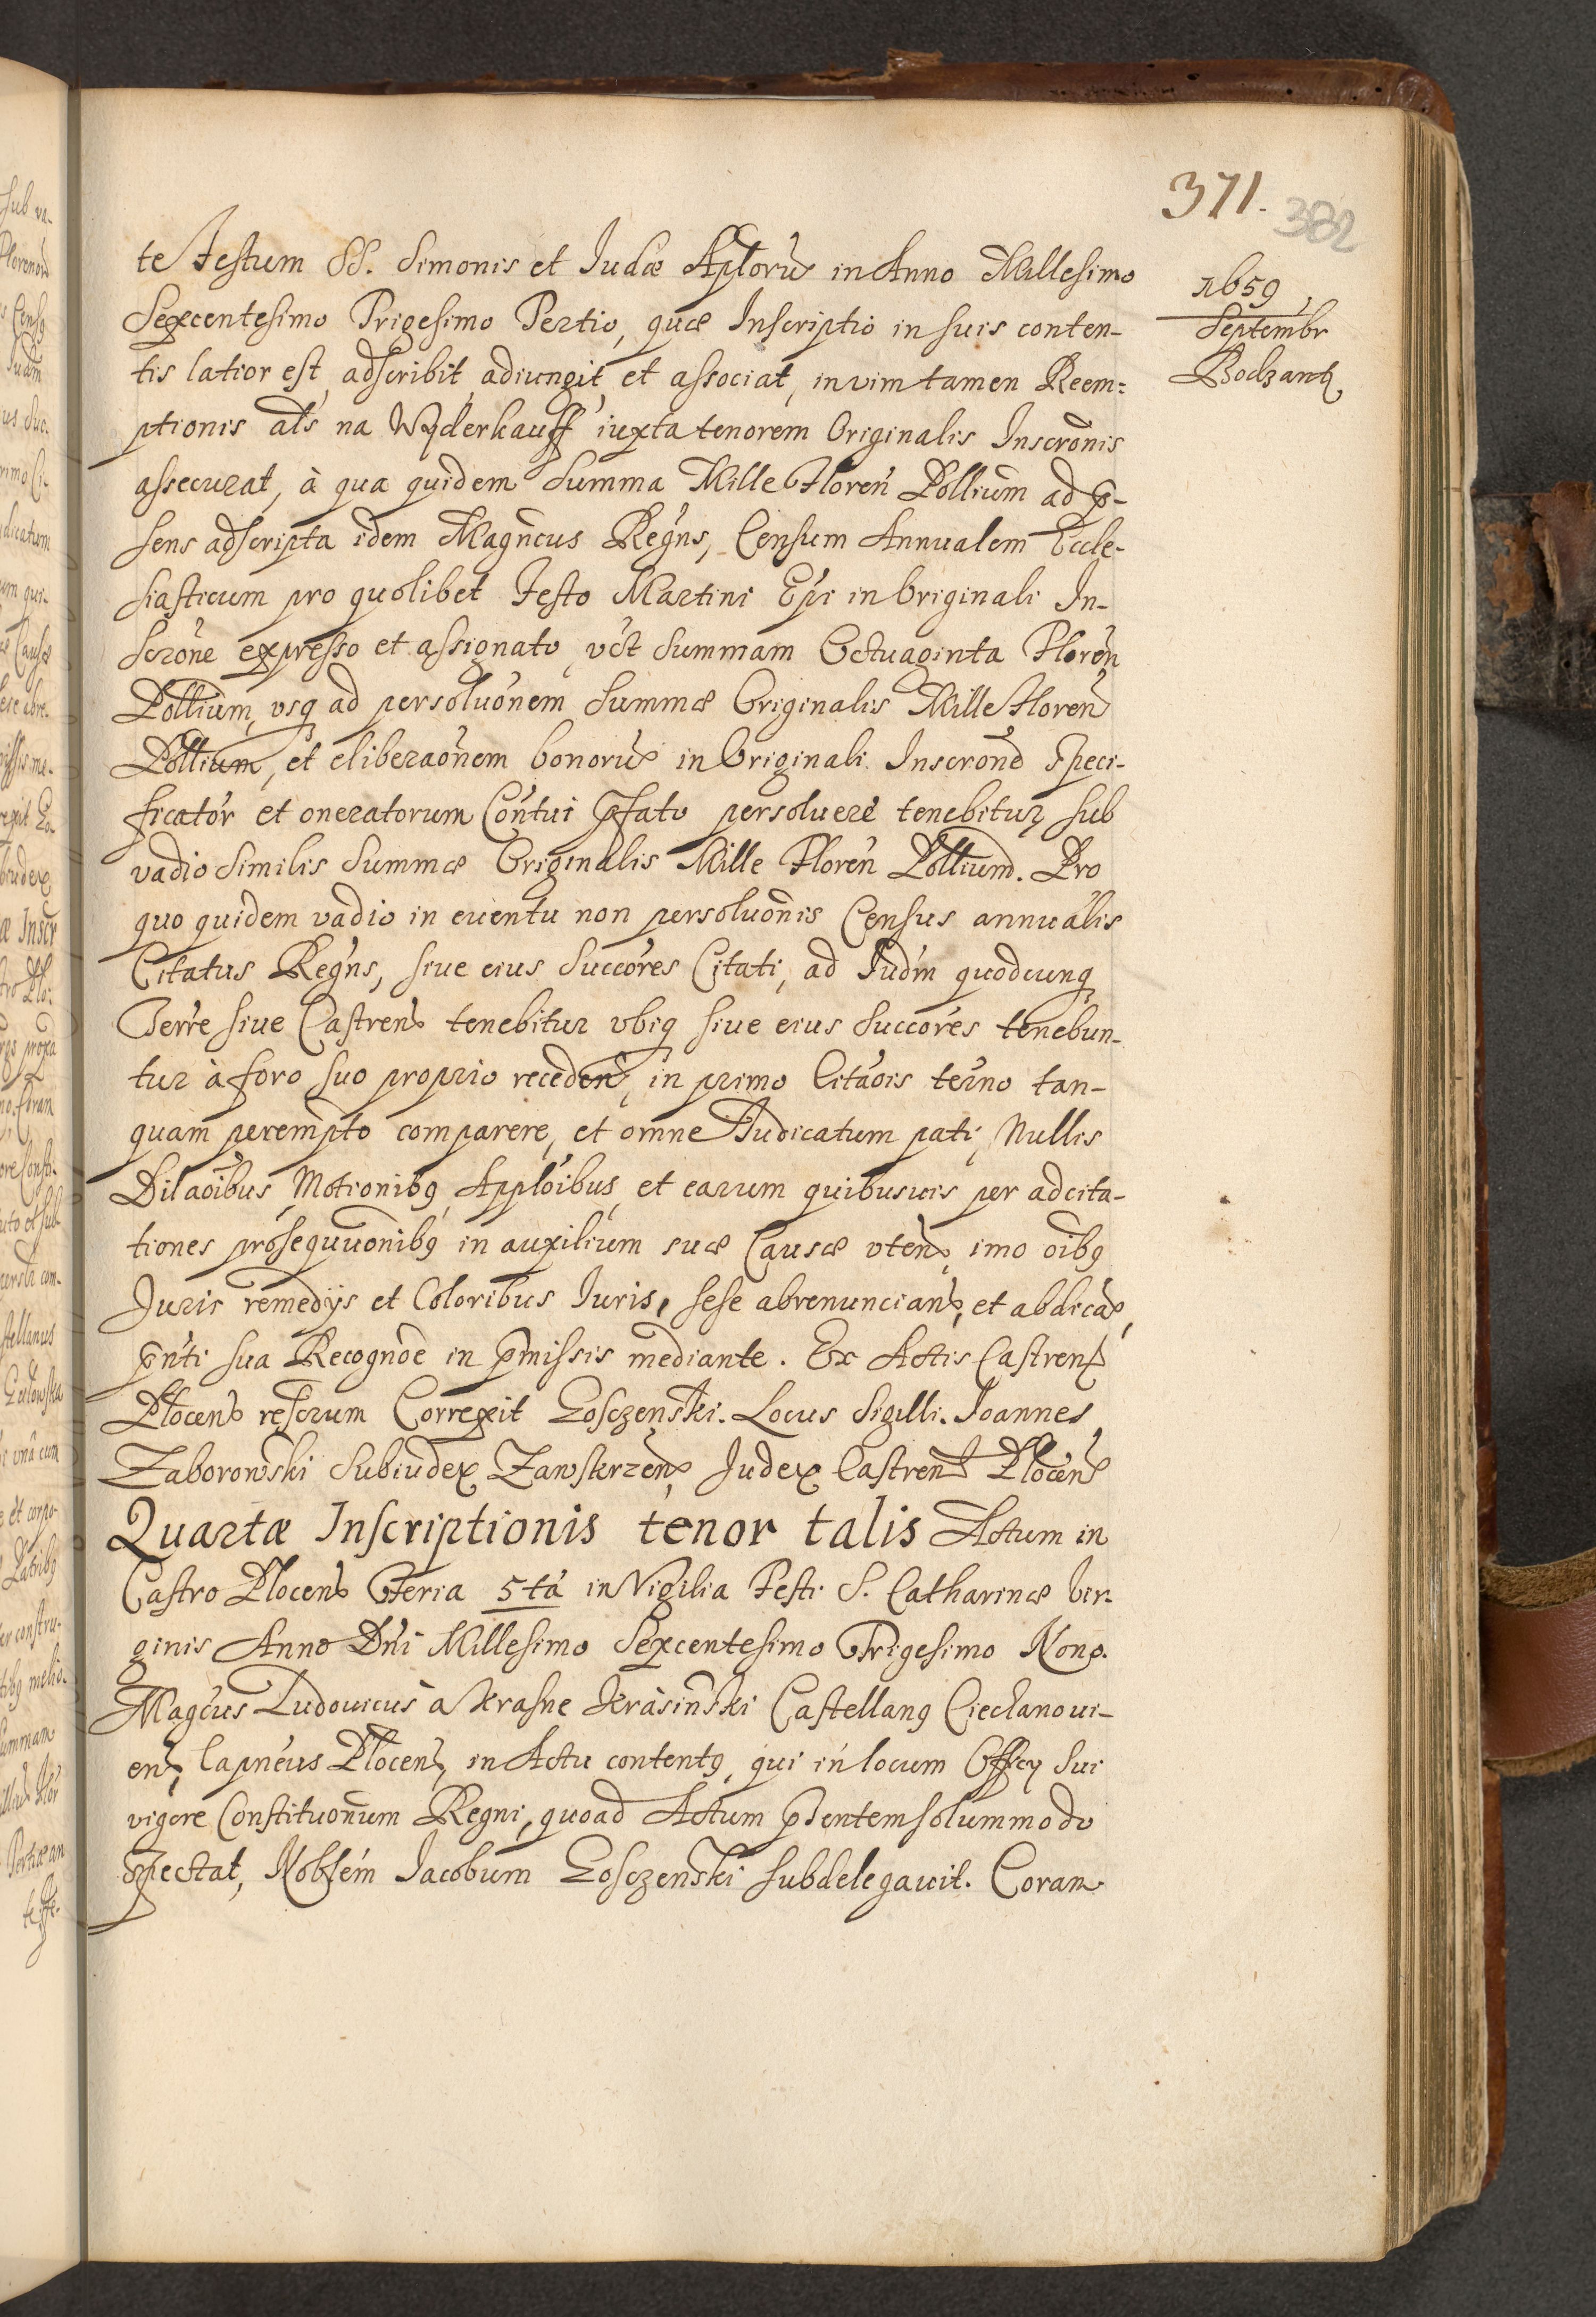 371.
382
1659
Septembr
Bodzant
te Festum SS. Simonis et Iudæ Aplorũ in Anno Millesimo
Sexcentesimo Trigesimo Tertio, quæ Inscriptio in suis conten-
tis latior est, adscribit, adiungit, et associat, in vim tamen Reem=
ptionis als na Wyderkauff iuxta tenorem Originalis Inscrõnis
assecurat, à qua quidem Summa Mille Floren Pollium ad p̃-
sens adscripta idem Magncus Regns, Censum Annualem Eccle-
siasticum pro quolibet Festo Martini Epi in Originali In-
scrõne expresso et assignato, vĉt Summam Octuaginta Floren
Pollium, usq ad persoluõnem Summæ Originalis Mille Floren
Pollium, et eliberaõnem bonorũ in Originali Inscrõne speci-
ficator et oneratorum Contui p̃fato persoluere tenebitur sub
vadio Similis Summæ Originalis Mille Floren Pollium. Pro
quo quidem vadio in euentu non persoluõnis Census annualis
Citatus Regns, siue eius Succores Citati, ad Iudm quodcunq
Terre siue Castrens tenebitur ubiq siue eius Succores tenebun-
tur à foro suo proprio recedens, in primo Citaõis terno tan-
quam perempto comparere, et omne Iudicatum pati, Nullis
Dilaõibus, Motionibq, Apploibus, et earum quibusuis per adcita-
tiones prosequuonibq in auxilium suæ Causæ utens, imo oibq
Iuris remedijs et Coloribus Iuris, sese abrenuncians, et abdicãs,
pñti sua Recognõe in p̃missis mediante. Ex Actis Castrens
Plocens rescrum Correxit Gosczenski. Locus Sigilli. Joannes
Zaborowski Subiudex Zawskrzens, Judex Castrens Plocens
Quartæ Inscriptionis tenor talis Actum in
Castro Plocens Feria 5tâ in Vigilia Festi S. Catharinæ Vir-
ginis Anno Dñi Millesimo Sexcentesimo Trigesimo Nono.
Magcus Ludouicus à Krasne Krasinski Castellanq Ciechanoui-
ens, Capneus Plocens, in Actu contentq, qui in locum Officij sui
vigore Constituonum Regni, quoad Actum p̃sentem solummodo
spectat, Noblem Iacobum Gosczenski subdelegauit. Coram